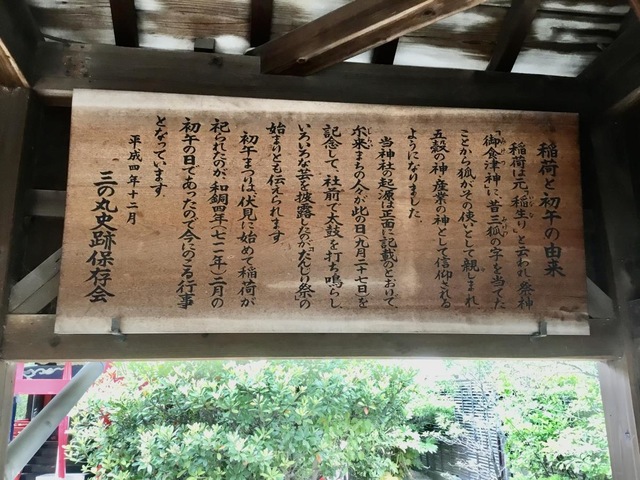 稲荷と初午の由来
稲荷は元、「稲生り」と云われ、祭神
「御食津神」に、昔三狐の字を当てた
ことから狐がその使いとして親しまれ
五穀の神、産業の神として信仰される
ようになりました。
当神社の起源は正面に記載のとおりで、
糸来まちの人が此の日(九月二十七日)を
記念して、社前で太鼓を打ち鳴らし、
いろいろな芸を披露したのが「だんじり祭の」
始まりとも伝えられます
初午まつりは伏見に始めて稲荷が
祀られたのが、和銅四年(七一一年)二月の
初午の日であったので今にのこる行事
となっています
平成四年十二月
三の丸史跡保存会